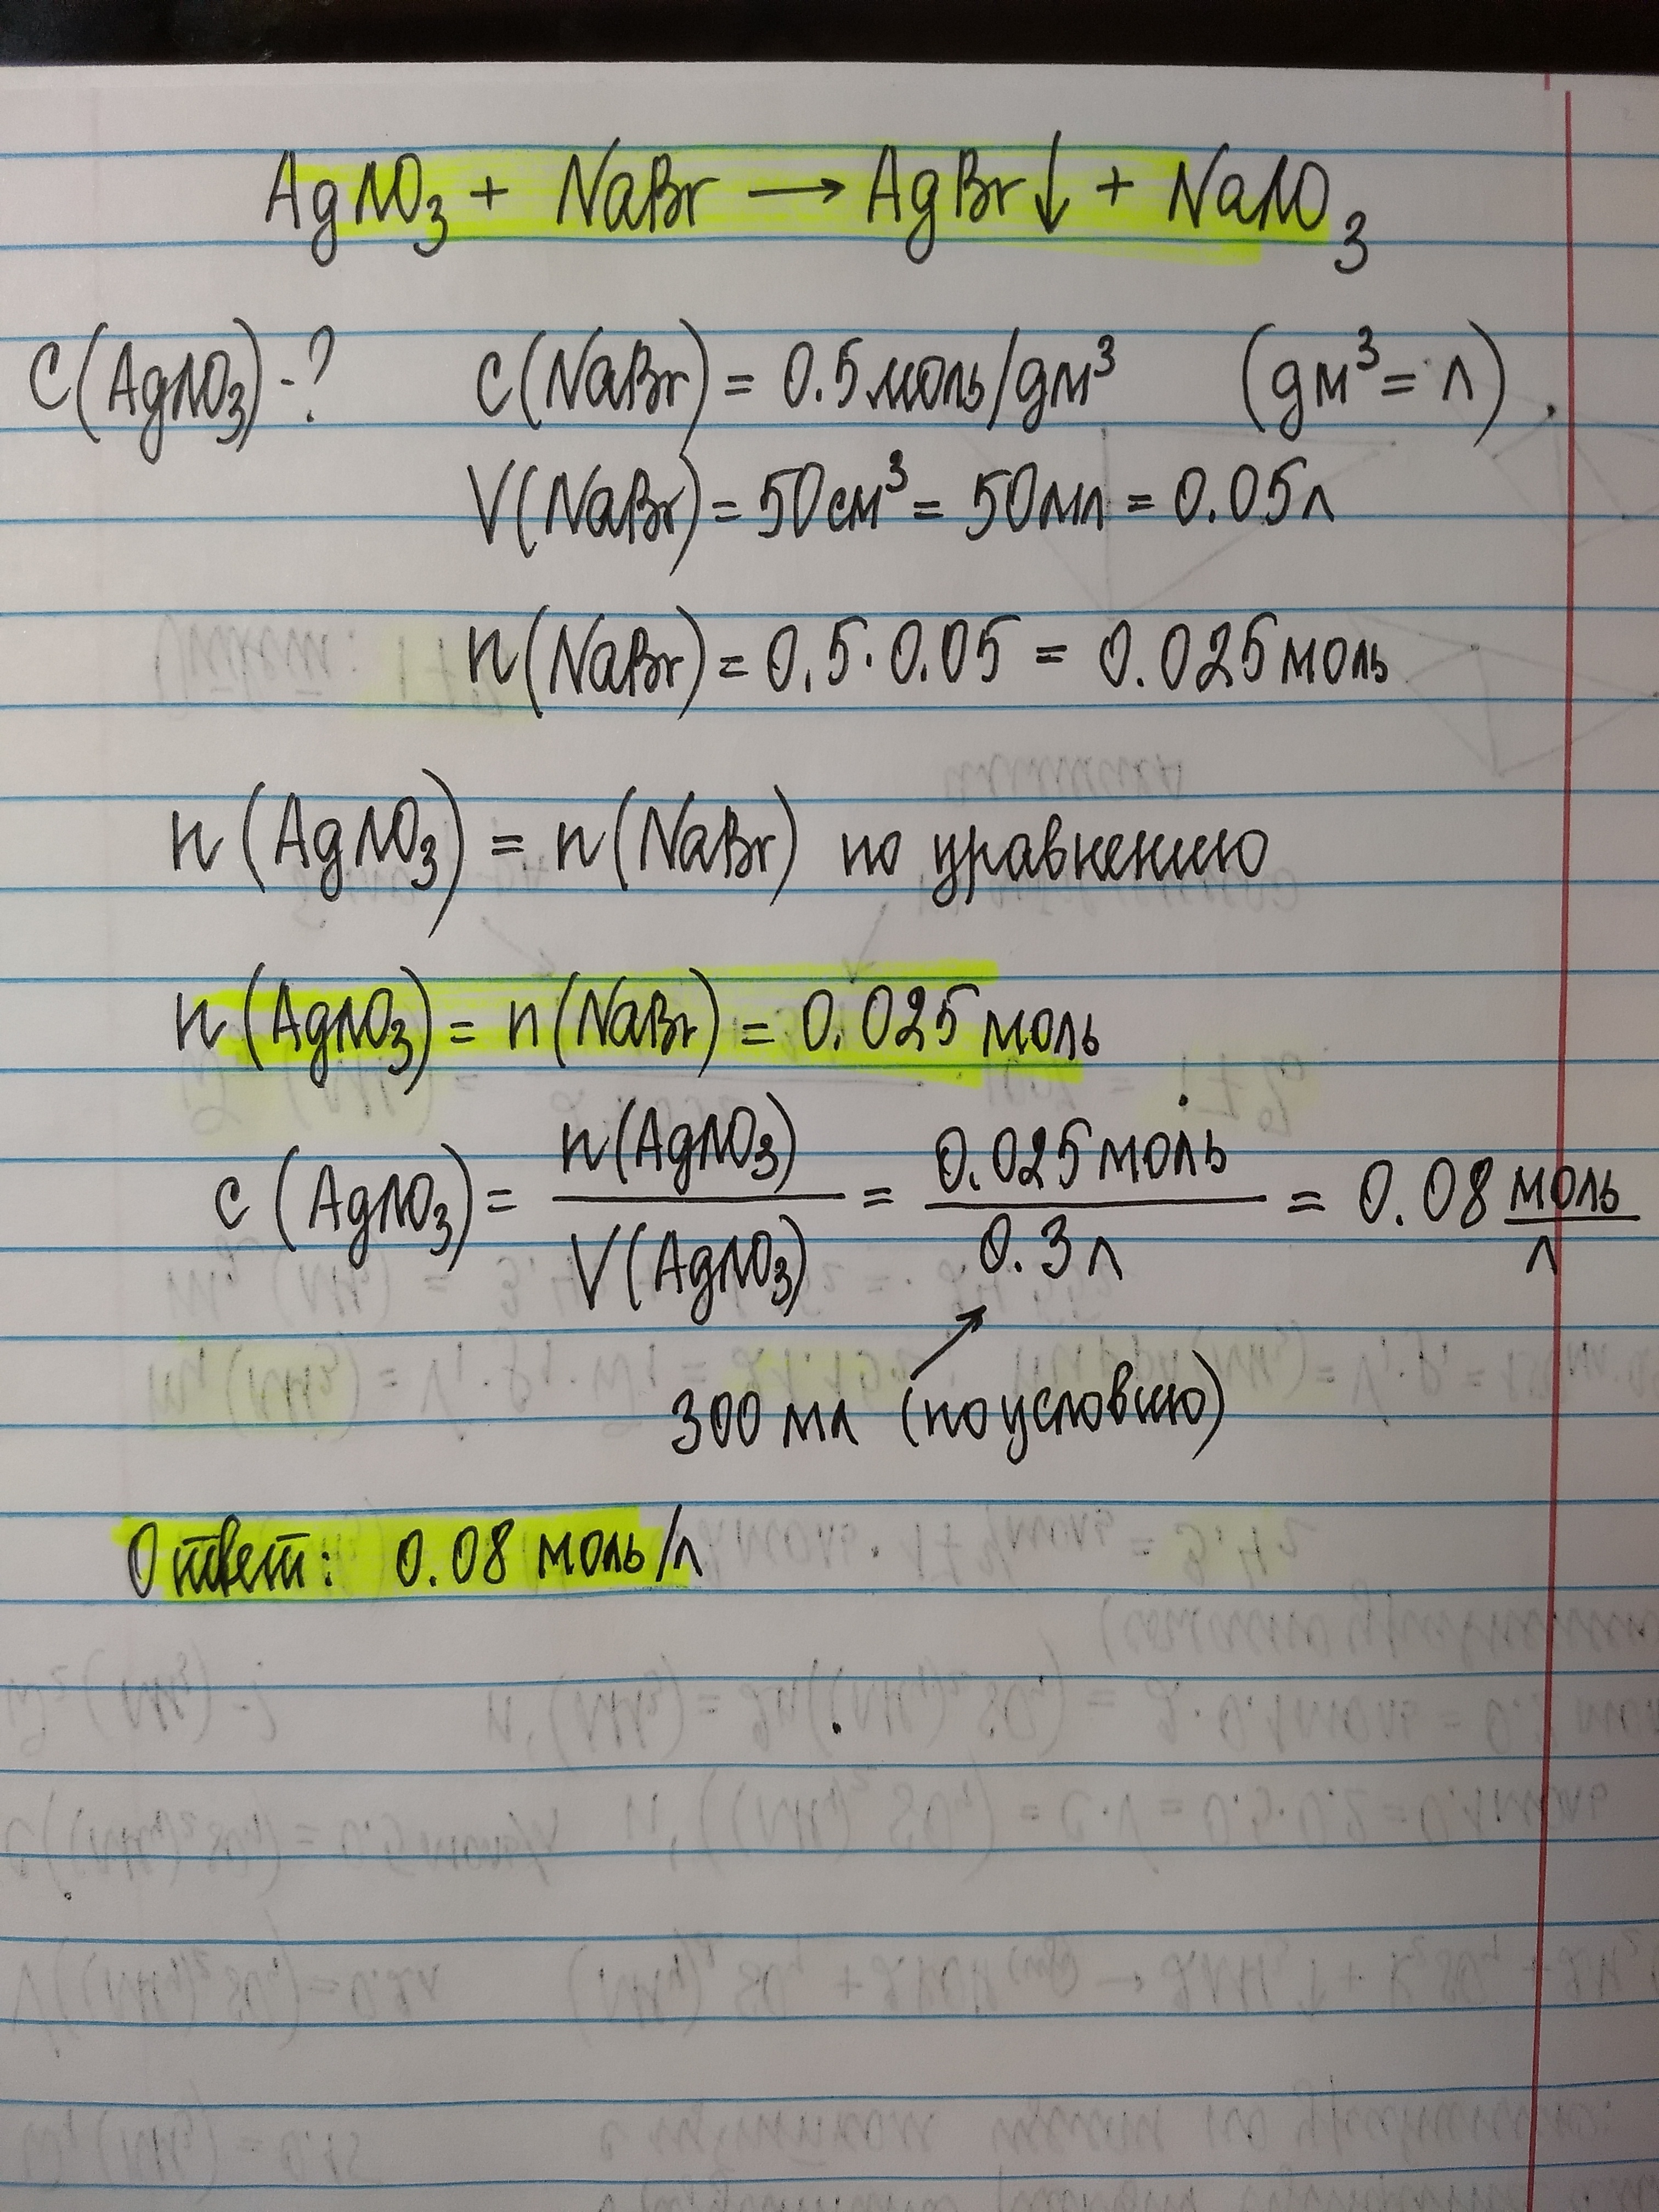 AgNO₃ + NaBr → AgBr↓ + NaNO₃
C(AgNO₃)-? C(NaBr) = 0.5 моль/дм³ (дм³ = л)
V(NaBr) = 50 см³ = 50 мл = 0.05 л
n(NaBr) = 0.5·0.05 = 0.025 моль
n(AgNO₃) = n(NaBr) по уравнению
n(AgNO₃) = n(NaBr) = 0.025 моль
c(AgNO₃) = n(AgNO₃)/V(AgNO₃) = 0.025 моль/0.3 л = 0.08 моль/л
300 мл (по условию)
Ответ: 0.08 моль/л